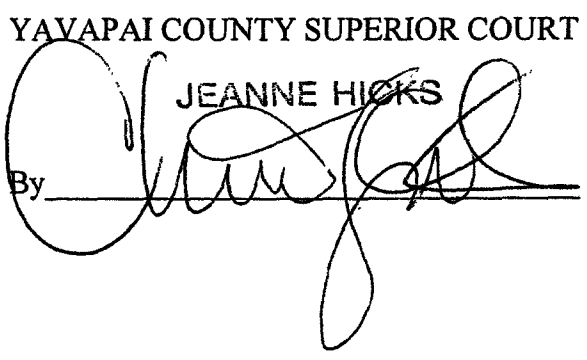 YAVAPAI COUNTY SUPERIOR COURT
JEANNE HICKS
By